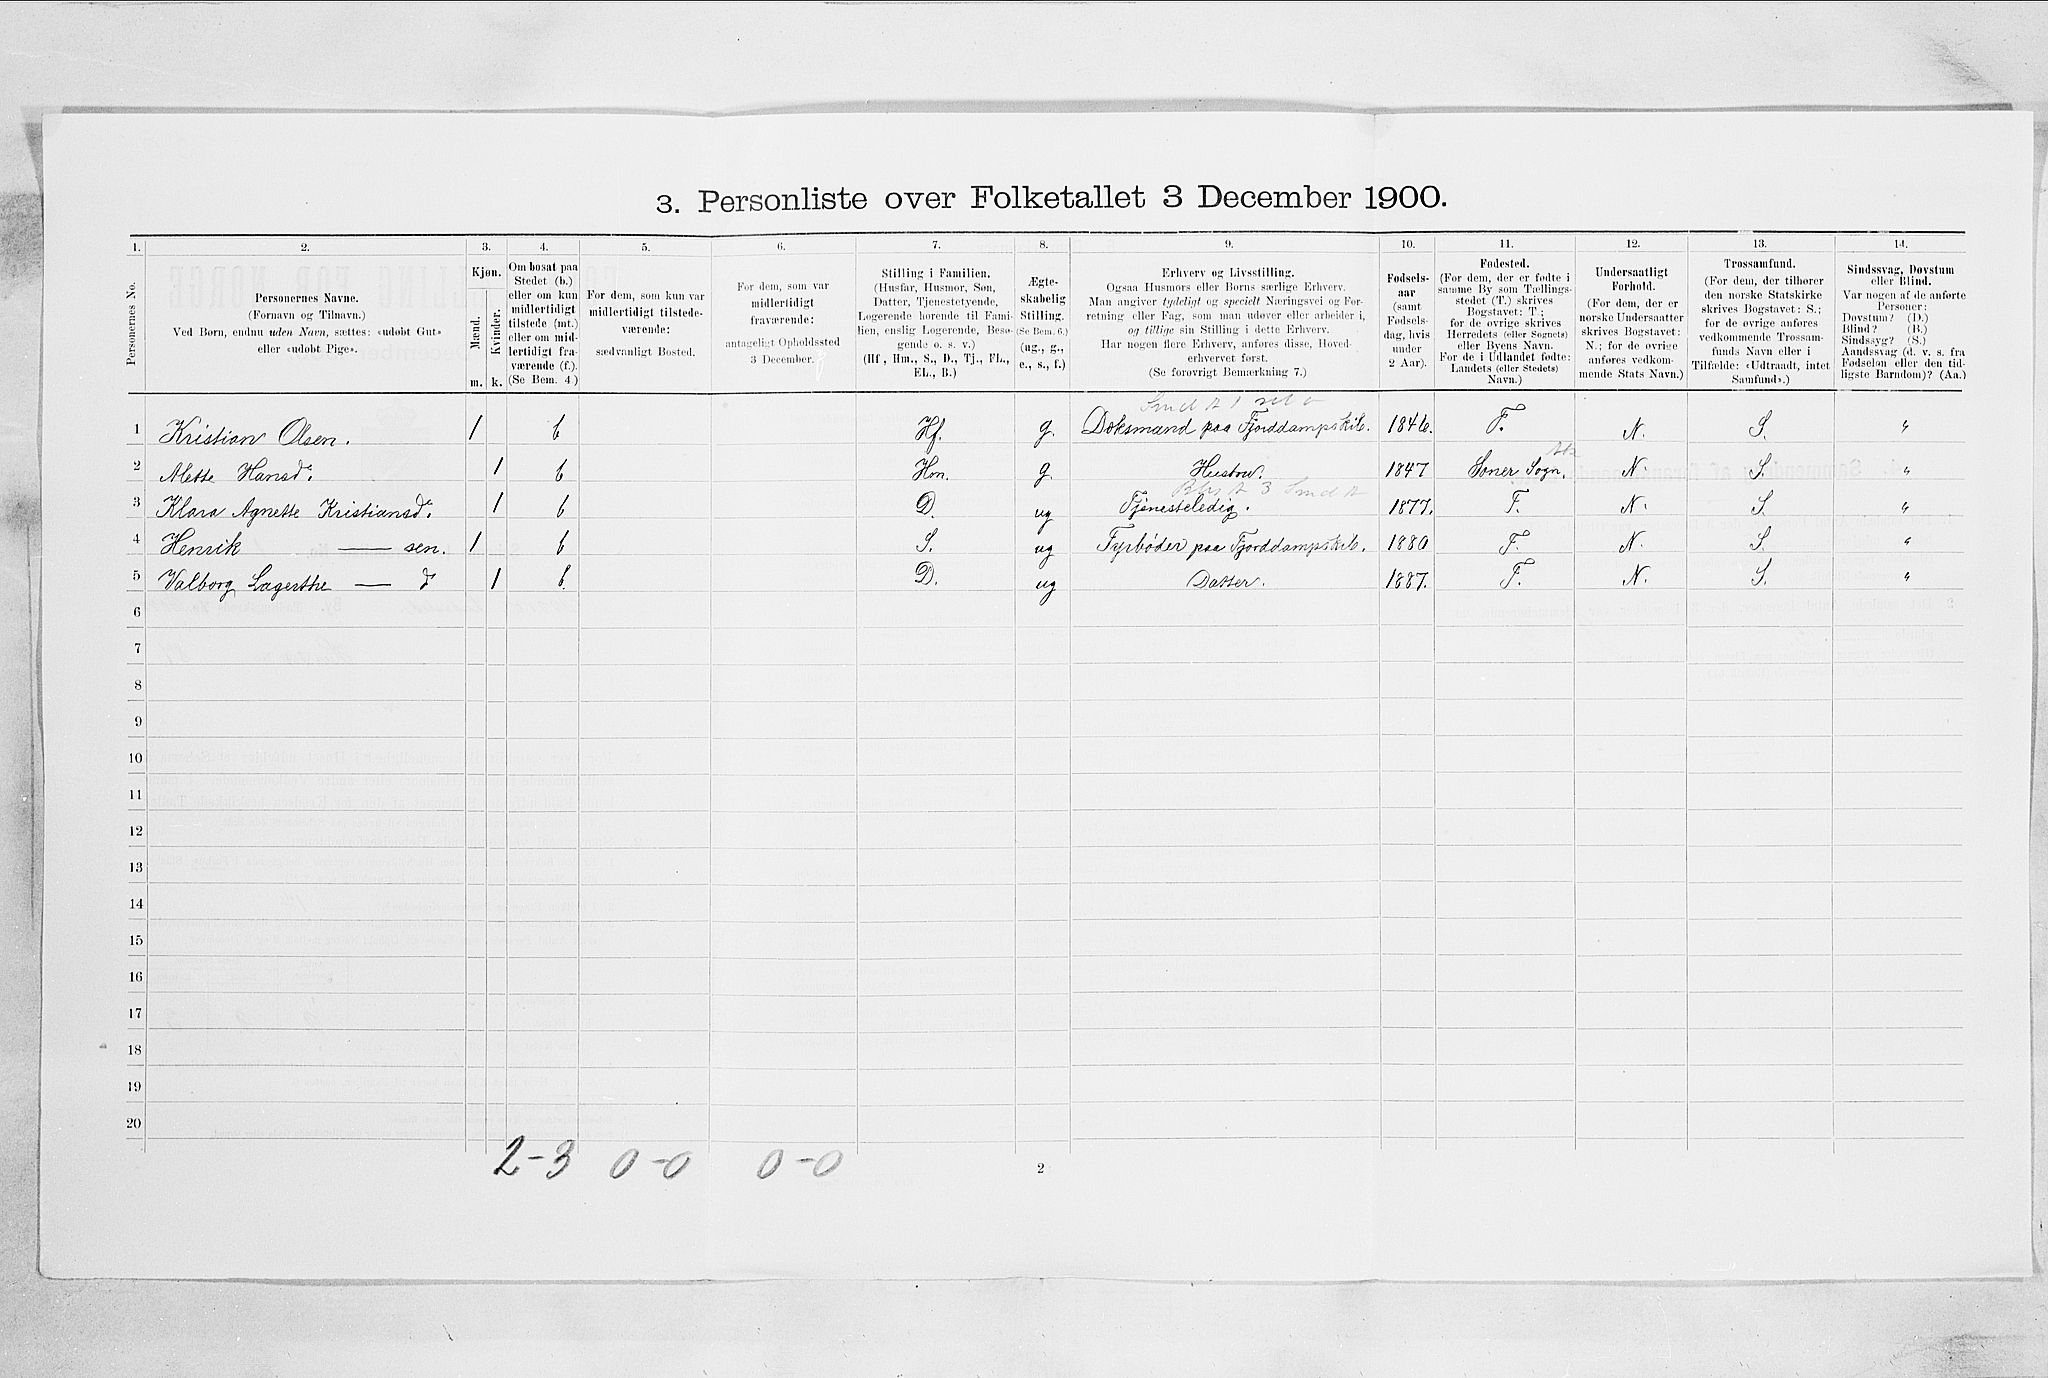 3. Personliste over Folketallet 3 December 1900.
1. 2. 3. 4. 5. 6. 7. 8. 9. 10. 11. 12. 13. 14.
Personernes No.
Personernes Navne.
(Fornavn og Tilnavn.)
Ved Børn, endnu uden Navn, sættes: «udøbt Gut»
eller «udøbt Pige».
Kjøn.
Mænd.
Kvinder.
m. k.
Om bosat paa
Stedet (b.)
eller om kun
midlertidigt
tilstede (mt.)
eller om mid-
lertidigt fra-
værende (f.).
(Se Bem. 4.)
For dem, som kun var
midlertidigt tilstede-
værende:
sædvanligt Bosted.
For dem, som var
midlertidigt
fraværende:
antageligt Opholdssted
3 December.
Stilling i Familien.
(Husfar, Husmor, Søn,
Datter, Tjenestetyende,
Logerende hørende til Fami-
lien, enslig Logerende, Besø-
gende o. s. v.)
(Hf, Hm., S., D., Tj., FL.,
EL., B.)
Ægte-
skabelig
Stilling.
(Se Bem. 6.)
(ug., g.,
e., s., f.)
Erhverv og Livsstilling.
Ogsaa Husmors eller Børns særlige Erhverv.
Man angiver tydeligt og specielt Næringsvei og For-
retning eller Fag, som man udøver eller arbeider i,
og tillige sin Stilling i dette Erhverv.
Har nogen flere Erhverv, anføres disse, Hoved-
erhvervet først.
(Se forøvrigt Bemærkning 7.)
Fødsels-
aar
(samt
Fødsels-
dag, hvis
under
2 Aar).
Fødested.
(For dem, der er fødte i
samme By som Tællings-
stedet (T.) skrives
Bogstavet: T.;
for de øvrige skrives
Herredets (eller Sognets)
eller Byens Navn.
For de i Udlandet fødte:
Landets (eller Stedets)
Navn.)
Undersaatligt
Forhold.
(For dem, der er
norske Undersaatter
skrives Bogstavet:
N.; for de øvrige
anføres vedkom-
mende Stats Navn.)
Trossamfund.
(For dem, der tilhører
den norske Statskirke
skrives Bogstavet: S.;
for de øvrige anføres
vedkommende Trossam-
funds Navn eller i
Tilfælde: «Udtraadt, intet
Samfund».)
Sindssvag, Døvstum
eller Blind.
Var nogen af de anførte
Personer:
Døvstum? (D.)
Blind? (B.)
Sindssyg? (S.)
Aandssvag (d. v. s. fra
Fødselen eller den tid-
ligste Barndom)? (Aa.)
1 Kristian Olsen. 1 b Hf. g. Dæksmand paa Fjorddampskib. 1846. T. N. S. "
2 Alette Hansd. 1 b Hm. g. Hustru. 1847 Soner Sogn. N. S. "
3 Klara Agnette Kristiansd. 1 b D. ug Tjenesteledig. 1877. T. N. S. "
4 Henrik — sen. 1 b S. ug Fyrbøder paa Fjorddampskib. 1880 T. N. S. "
5 Valborg Lagerthe — d 1 b. D. ug Datter. 1887. T. N. S. "
6
7
8
9
10
11
12
13
14
15
16
17
18
19
20
2-3 0-0 0-0
2